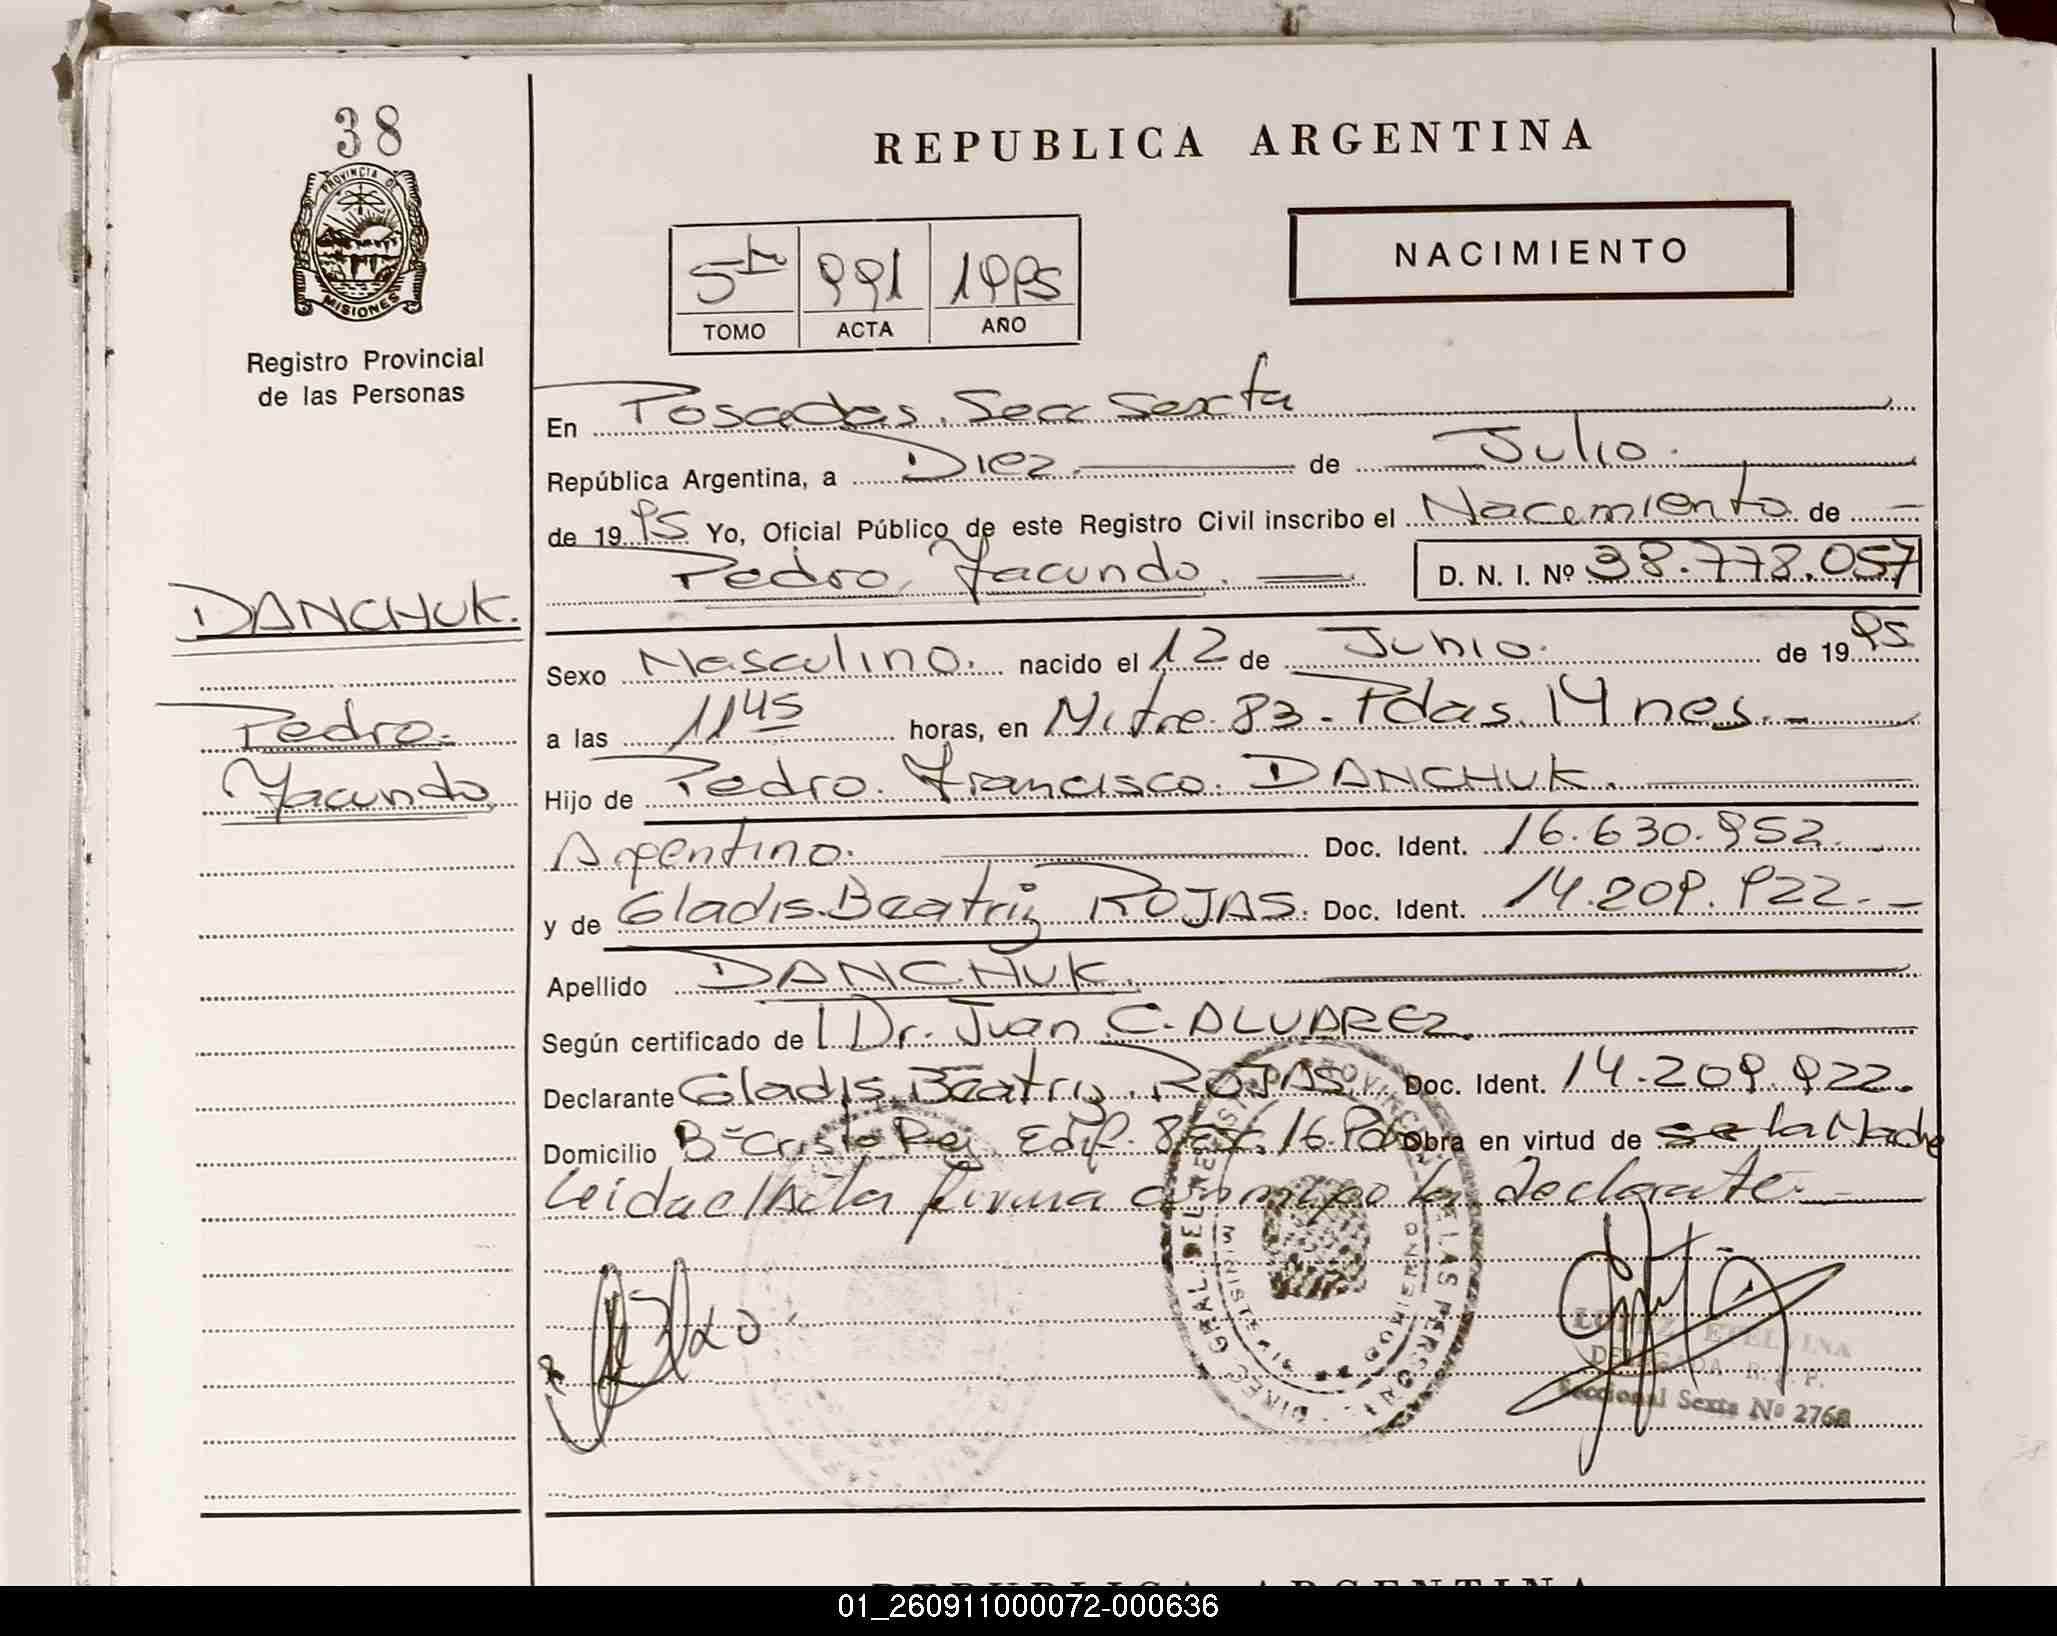 38
PROVINCIA DE
MISIONES
Registro Provincial
de las Personas
DANCHUK.
Pedro.
Facundo
REPUBLICA ARGENTINA
NACIMIENTO
5to 991 1995
TOMO ACTA AÑO
En Posadas. Secc Sexta
República Argentina, a Diez. de Julio.
de 19 95 Yo, Oficial Público de este Registro Civil inscribo el Nacimiento de
Pedro, Facundo. D. N. I. Nº 38.778.057
Sexo Masculino. nacido el 12 de Junio. de 19 95
a las 11 45 horas, en Mitre. 83 - Pdas. Mnes. -
Hijo de Pedro. Francisco. DANCHUK.
Argentino. Doc. Ident. 16.630.952.
y de Gladis. Beatriz ROJAS. Doc. Ident. 14.209.922. -
Apellido DANCHUK.
Según certificado de Dr. Juan C. ALVAREZ.
Declarante Gladis Beatriz. ROJAS. Doc. Ident. 14.209.922.
Domicilio Bº Cristo Rey Edif. 8 Esc. 16. Pdas Obra en virtud de ser la Madre
Leida el Acta firma conmigo la declarante. -
DIREC GRAL DEL REGISTRO PROVINCIAL DE LAS PERSONAS
MINISTERIO GOBIERNO
LOPEZ ETELVINA
DELEGADA R. P. P.
Seccional Sexta Nº 276
REPUBLICA ARGENTINA
01_260911000072-000636